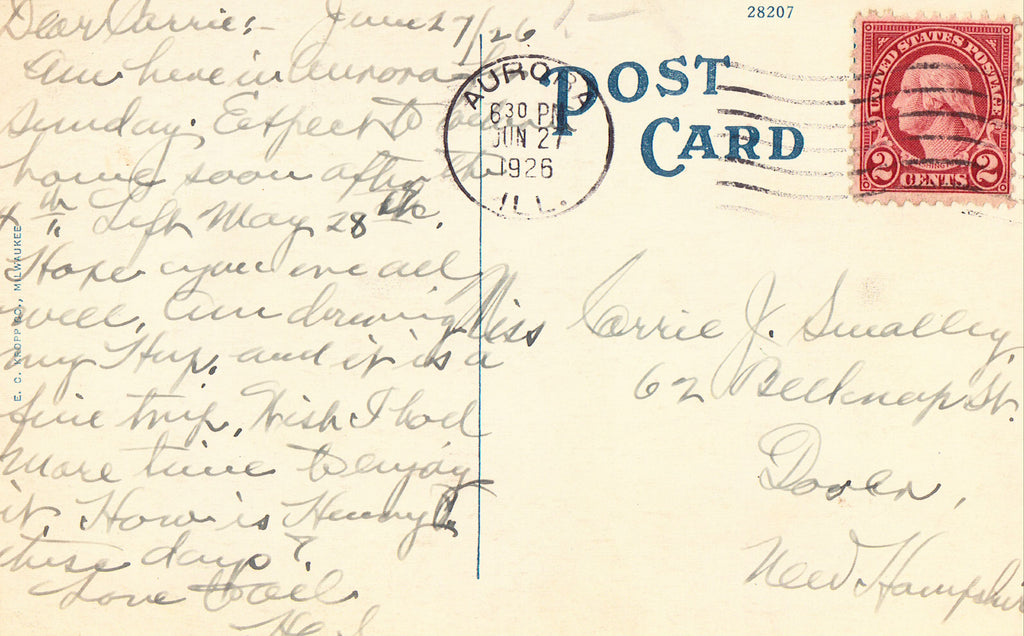 28207
Dear Carrie:- June 27/26
Am here in Aurora
Sunday. Expect to be
home soon after the
4th Left May 28th.
Hope you are all
well. Am driving
my Hup. and it is a
fine trip. Wish I had
more time to enjoy
it. How is Henry
these days?
Love to all
H.
E. C. KROPP CO., MILWAUKEE
POST
CARD
AURORA
630 PM
JUN 27
1926
ILL.
UNITED STATES POSTAGE
2 CENTS 2
Miss Carrie J. Smalley,
62 Belknap St.
Dover,
New Hampshire